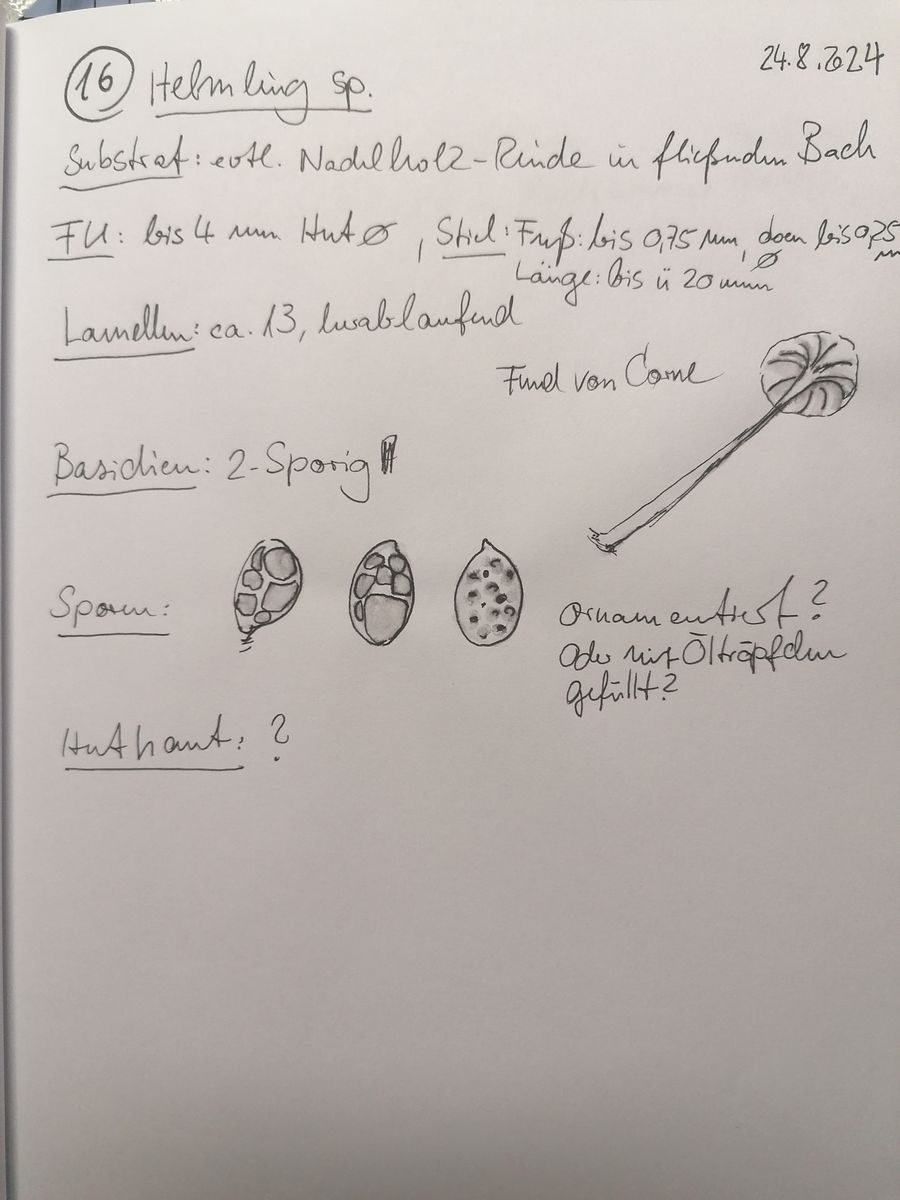 24.8.2024
16 Helmling sp.
Substrat: evtl. Nadelholz-Rinde in fließenden Bach
FU: bis 4 mm Hut ⌀, Stiel: Fuß: bis 0,75 mm, oben bis 0,25
Länge: bis ü 20 mm ⌀
Lamellen: ca. 13, herablaufend
Fund von
Basidien: 2-Sporig
Sporen:
Ornamentiert?
Oder mit Öltröpfchen
gefüllt?
Huthaut: ?